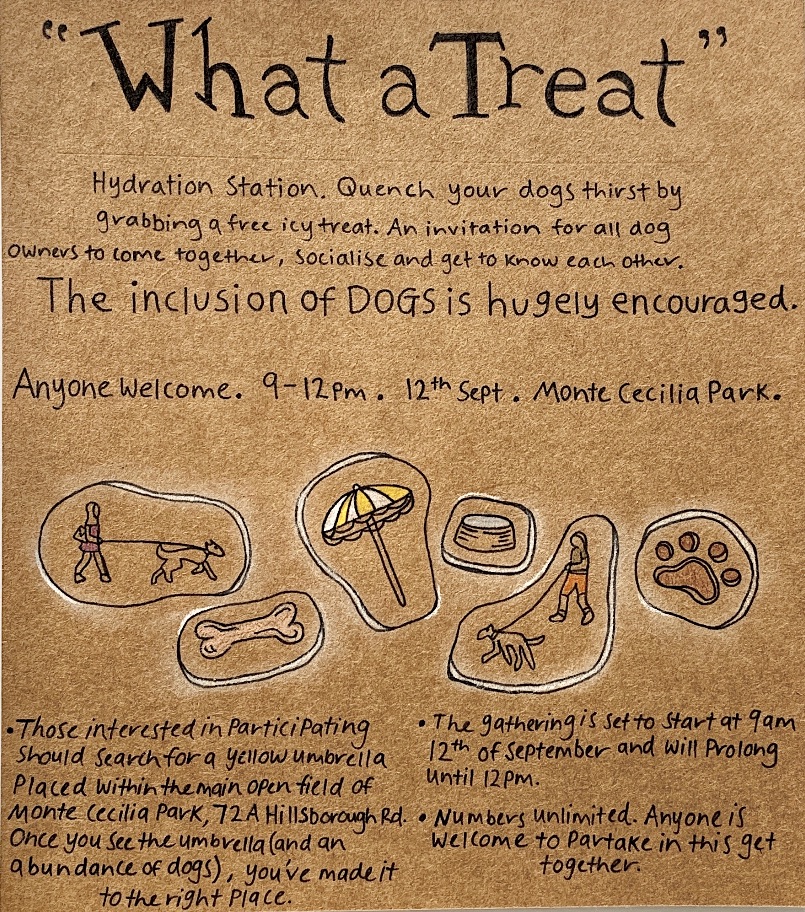 "What a Treat"
Hydration Station. Quench your dogs thirst by
grabbing a free icy treat. An invitation for all dog
owners to come together, socialise and get to know each other.
The inclusion of DOGS is hugely encouraged.
Anyone Welcome. 9-12pm. 12th Sept. Monte Cecilia Park.
• Those interested in Participating
should search for a yellow umbrella
Placed within the main open field of
Monte Cecilia Park, 72A Hillsborough Rd.
Once you see the umbrella (and an
abundance of dogs), you've made it
to the right Place.
• The gathering is set to start at 9am
12th of September and will Prolong
until 12pm.
• Numbers unlimited. Anyone is
welcome to Partake in this get
together.